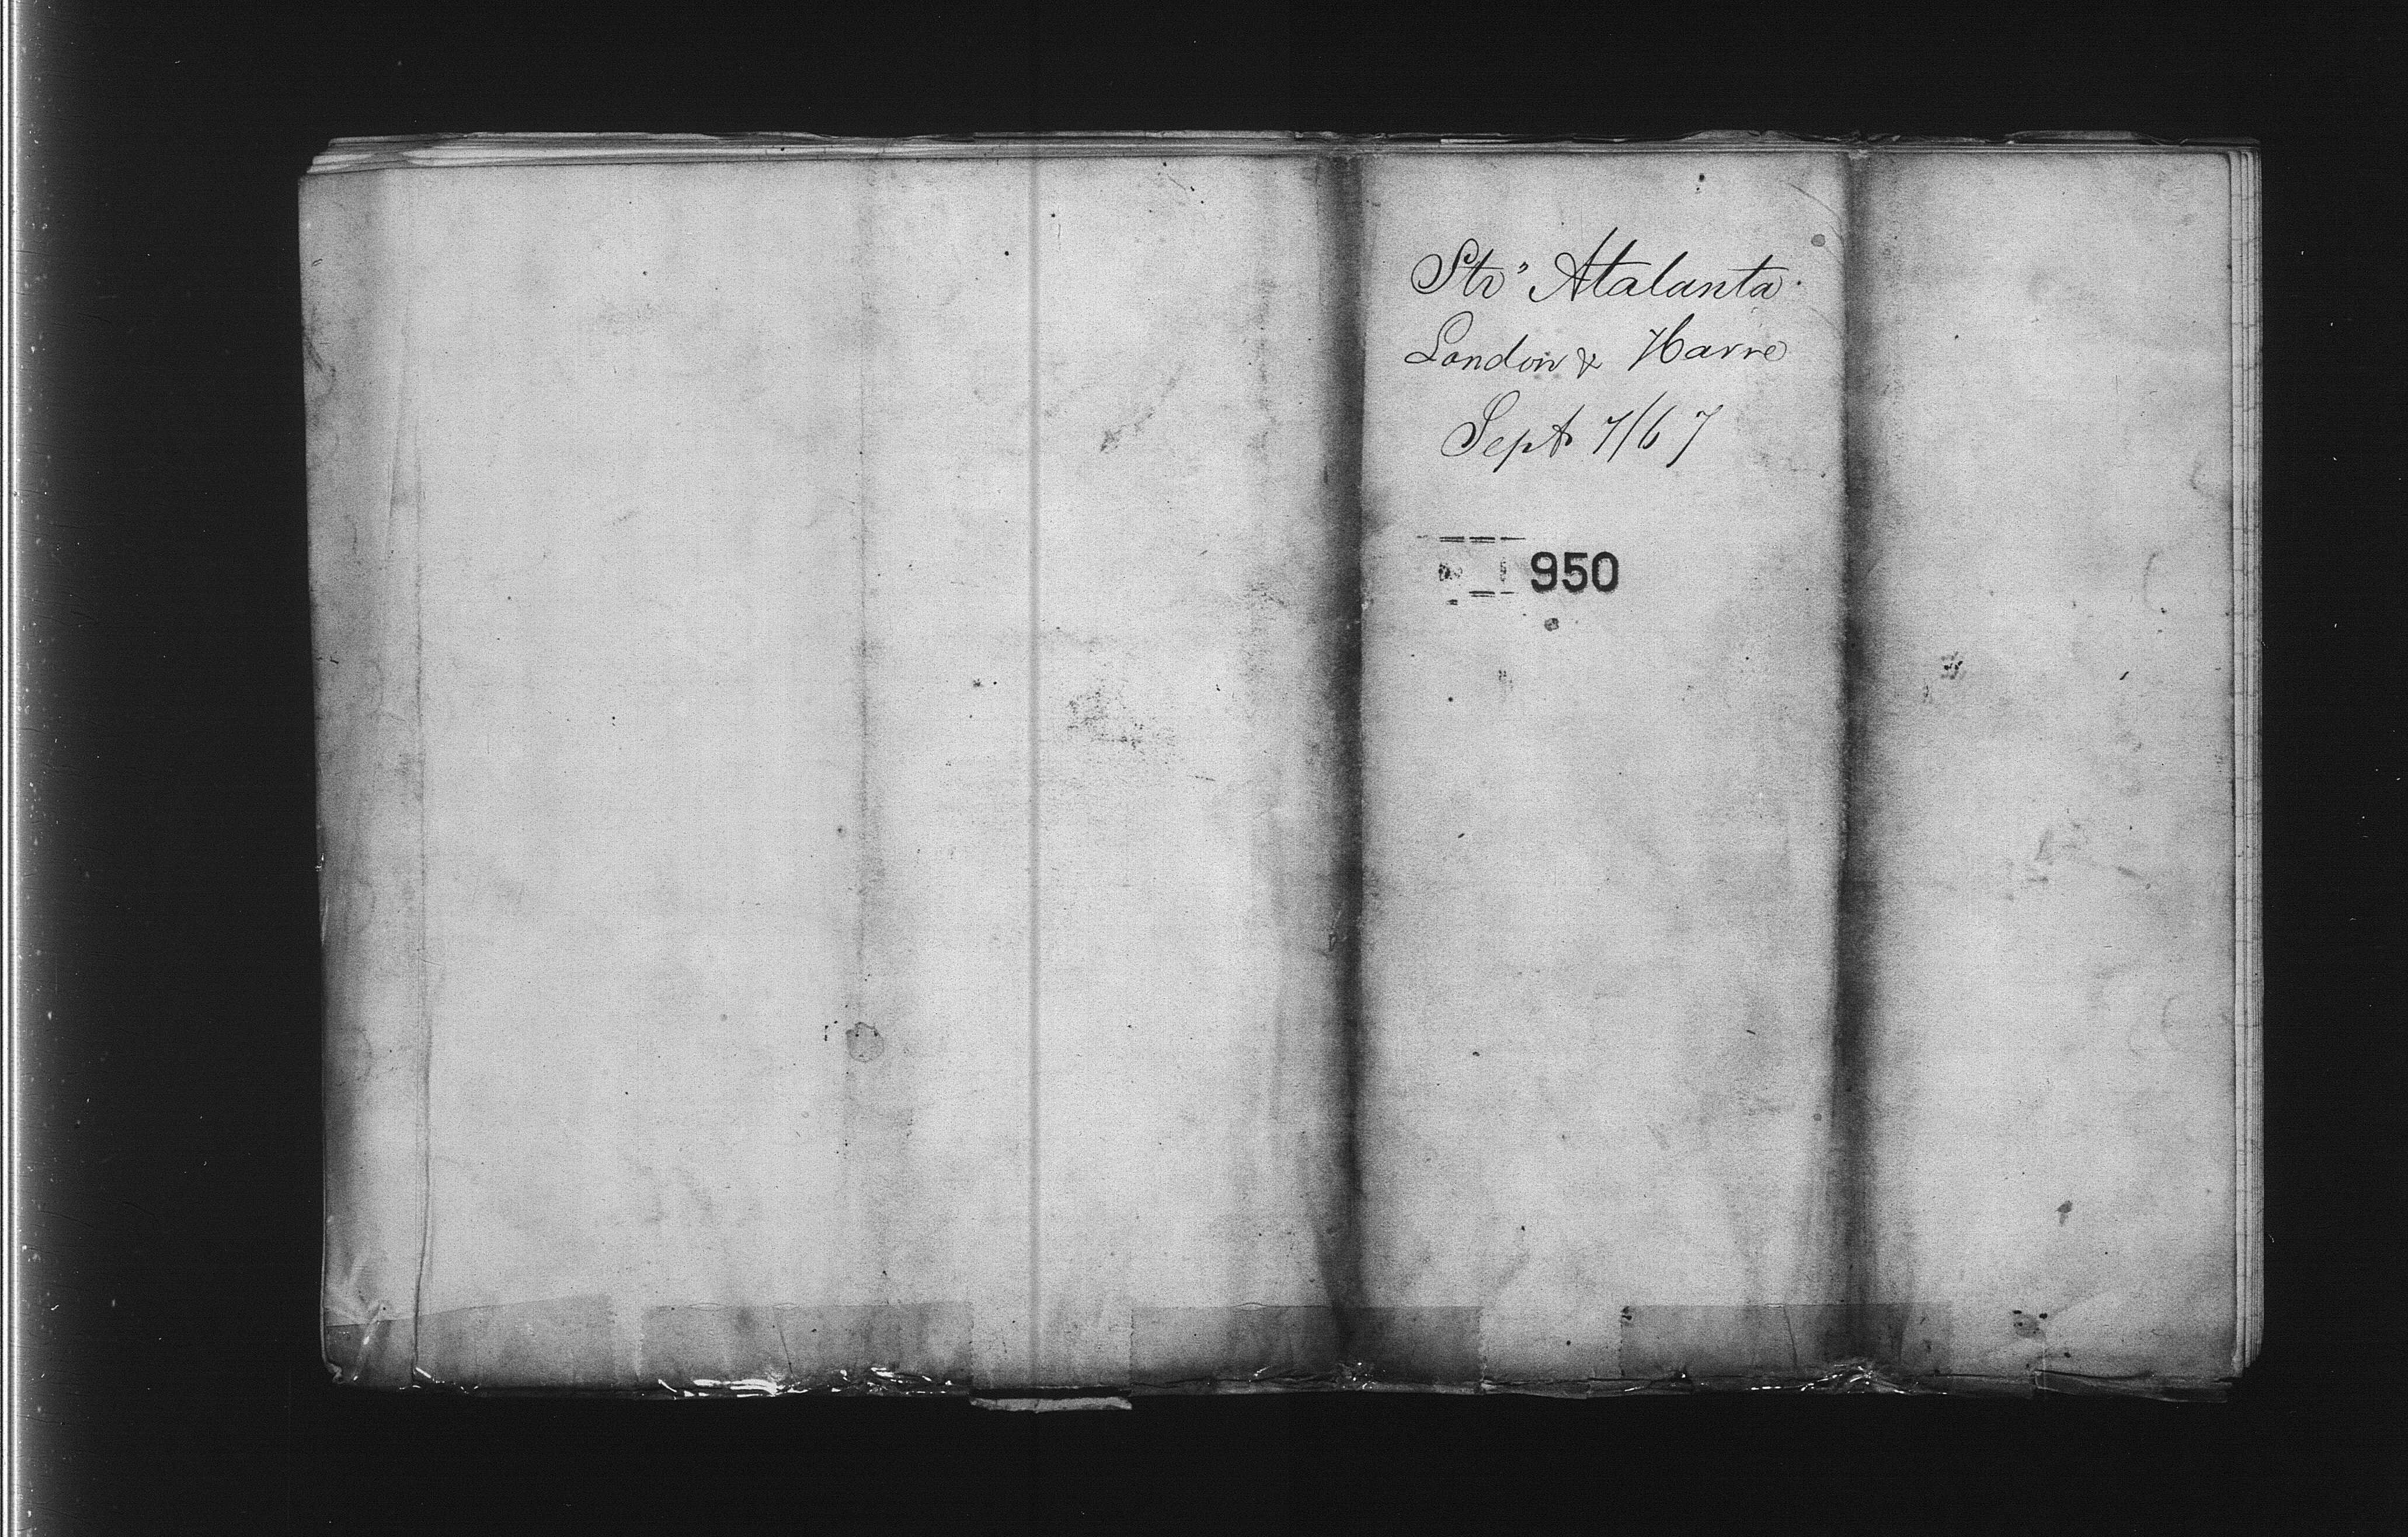 Str" Atalanta.
London & Havre
Sept 7/67
950